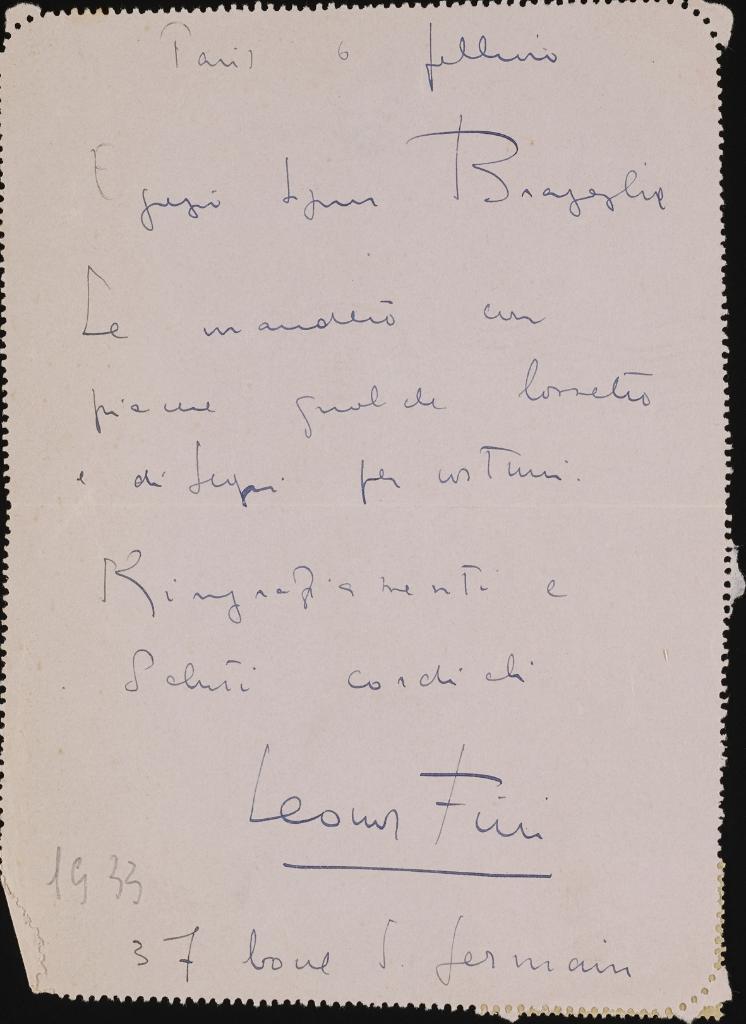 Paris 6 febbraio
Egregio Signor Bragaglia
Le manderò con
piacere qualche bozzetto
e disegni per costumi.
Ringraziamenti e
Saluti cordiali
Leonor Fini
1933
37 boul S. Germain